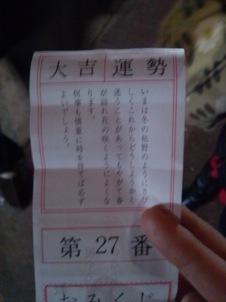 大吉 運勢
いまは冬の枯野のようにさび
しくこれからどうしようかと
迷うことがあってもやがて春
が訪れ花の咲くようによくな
ります。
何事も慎重に時を待てば必ず
よいでしょう。
第27番
おみくじ